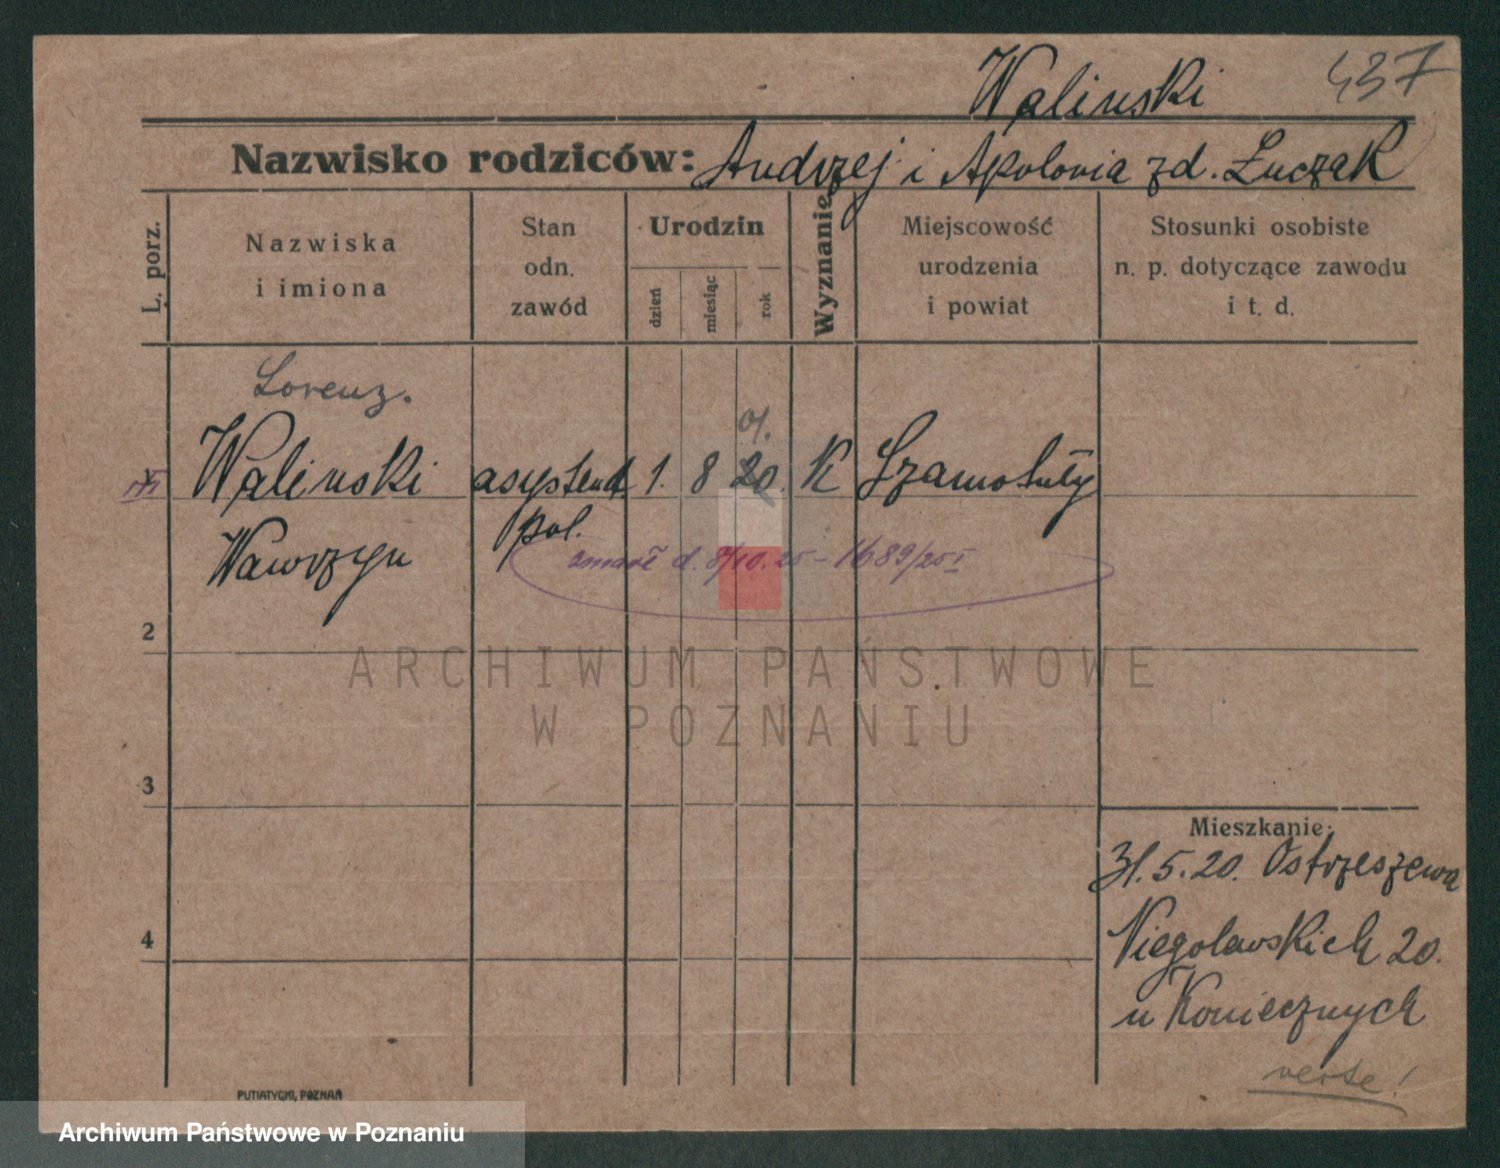 437
Walinski
Nazwisko rodziców: Andrzej i Apolonia zd. Łuczak
L. porz.
Nazwiska
i imiona
Stan
odn.
zawód
Urodzin
dzień
miesiąc
rok
Wyznanie
Miejscowość
urodzenia
i powiat
Stosunki osobiste
n. p. dotyczące zawodu
i t. d.
Lorenz.
01.
Walinski asystent 1. 8 20 K Szamotuły
pol.
Wawrzyn
zmarł d. 8/10.25 - 1689/25 I
2
ARCHIWUM PAŃSTWOWE
W POZNANIU
3
Mieszkanie:
31.5.20. Ostrzeszewa
4
Niegolewskich 20.
u Koniecznych
verte!
PUTIATYCKI, POZNAŃ
Archiwum Państwowe w Poznaniu